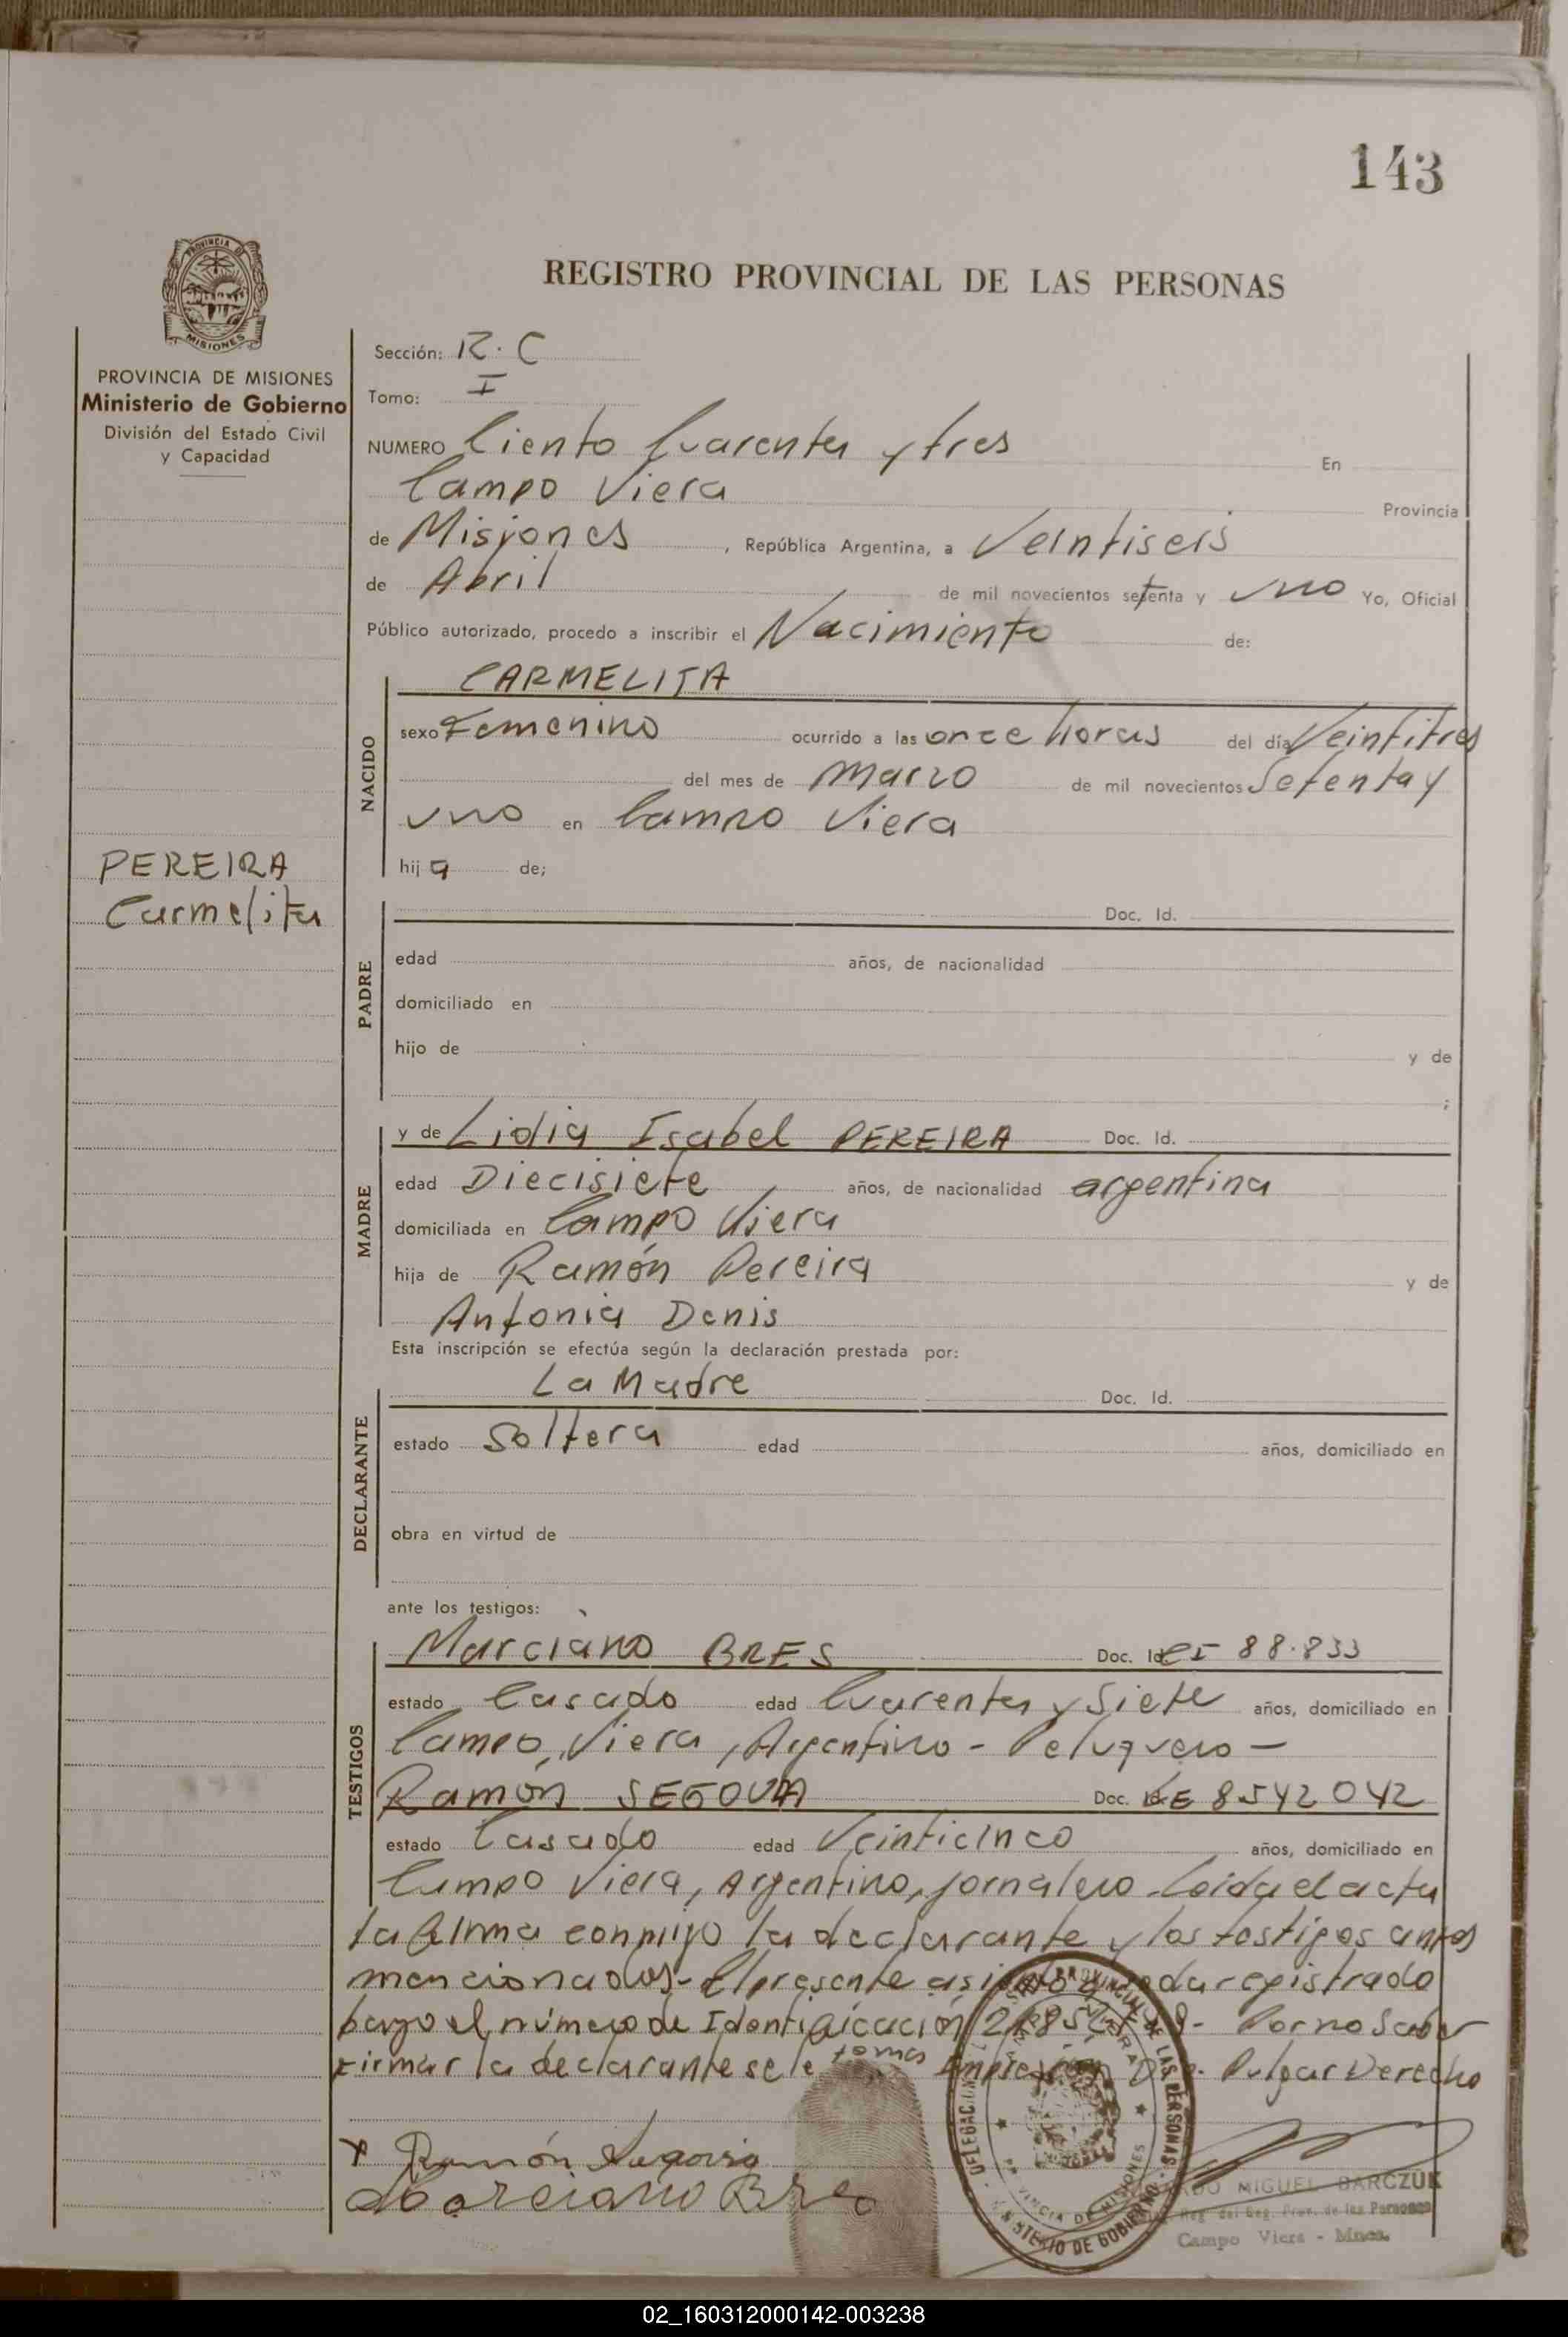 143
PROVINCIA DE
MISIONES
REGISTRO PROVINCIAL DE LAS PERSONAS
PROVINCIA DE MISIONES
Ministerio de Gobierno
División del Estado Civil
y Capacidad
PEREIRA
Carmelita
Sección: R. C
Tomo: I
NUMERO Ciento Cuarenta y tres En
Campo Viera Provincia
de Misiones, República Argentina, a Veintiseis
de Abril de mil novecientos setenta y uno Yo, Oficial
Público autorizado, procedo a inscribir el Nacimiento de:
NACIDO
CARMELITA
sexo Femenino ocurrido a las once horas del día Veintitres
del mes de Marzo de mil novecientos Setenta y
uno en Campo Viera
hija de;
PADRE
Doc. Id.
edad años, de nacionalidad
domiciliado en
hijo de y de
;
MADRE
y de Lidia Isabel PEREIRA Doc. Id.
edad Diecisiete años, de nacionalidad argentina
domiciliada en Campo Viera
hija de Ramón Pereira y de
Antonia Denis
Esta inscripción se efectúa según la declaración prestada por:
DECLARANTE
La Madre Doc. Id.
estado Soltera edad años, domiciliado en
obra en virtud de
ante los testigos:
TESTIGOS
Marciano BRES Doc. Id CI 88.833
estado Casado edad Cuarenta y Siete años, domiciliado en
Campo Viera, Argentino - Peluquero -
Ramón SEGOVIA Doc. Id LE 8542042
estado Casado edad Veinticinco años, domiciliado en
Campo Viera, Argentino, jornalero. Leida el acta
la firma conmigo la declarante y los testigos antes
mencionados. El presente asiento queda registrado
bajo el número de Identificación Por no Saber
Firmar la declarante se le toma Impresión Dig. Pulgar Derecho
Ramón Segovia
Marciano Bres
DELEGACION
PROVINCIAL DE LAS PERSONAS
PROVINCIA DE MISIONES
MINISTERIO DE GOBIERNO
MIGUEL BARCZUK
Reg. del Reg. Prov. de las Personas
Campo Viera - Mnes.
02_160312000142-003238